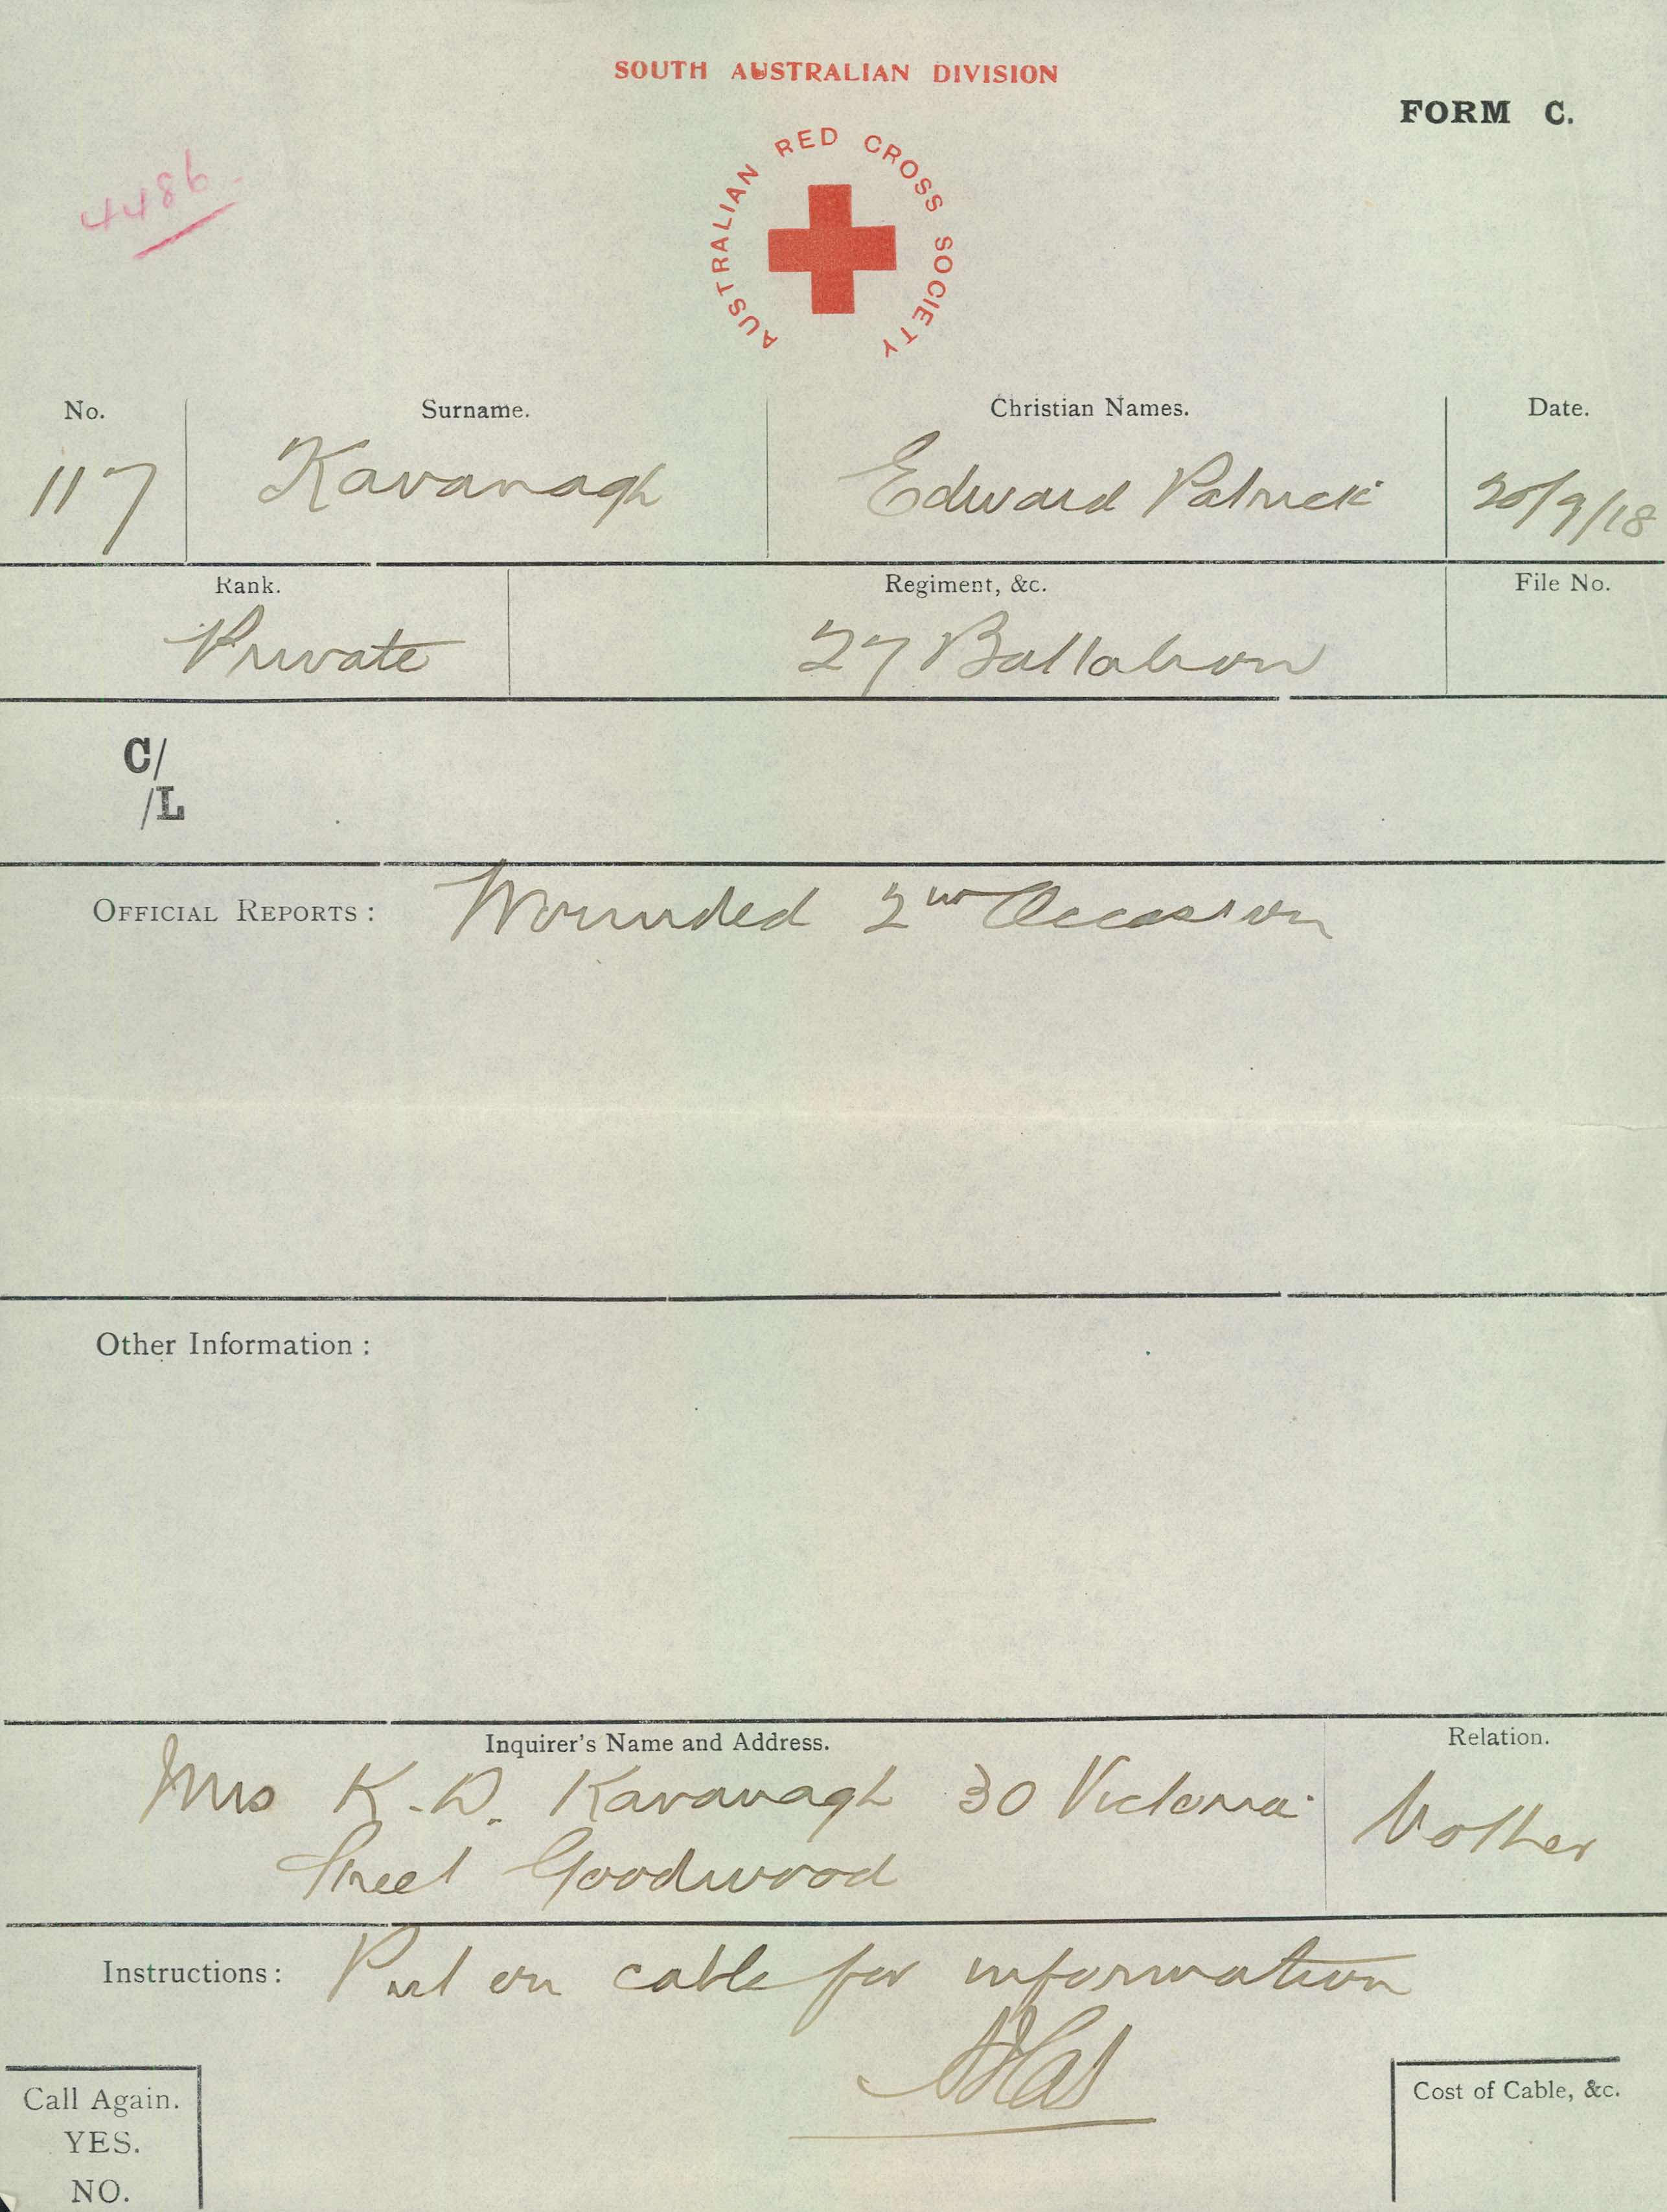 SOUTH AUSTRALIAN DIVISION
FORM C.
4486.
AUSTRALIAN RED CROSS SOCIETY
No. Surname. Christian Names. Date.
117 Kavanagh Edward Patrick 20/9/18
Rank. Regiment, &c. File No.
Private 27 Battalion
C/
/L
OFFICIAL REPORTS: Wounded 2nd Occasion
Other Information:
Inquirer's Name and Address. Relation.
Mrs K. D. Kavanagh 30 Victoria Mother
Street Goodwood
Instructions: Put on cable for information
Call Again. Cost of Cable, &c.
YES.
NO.